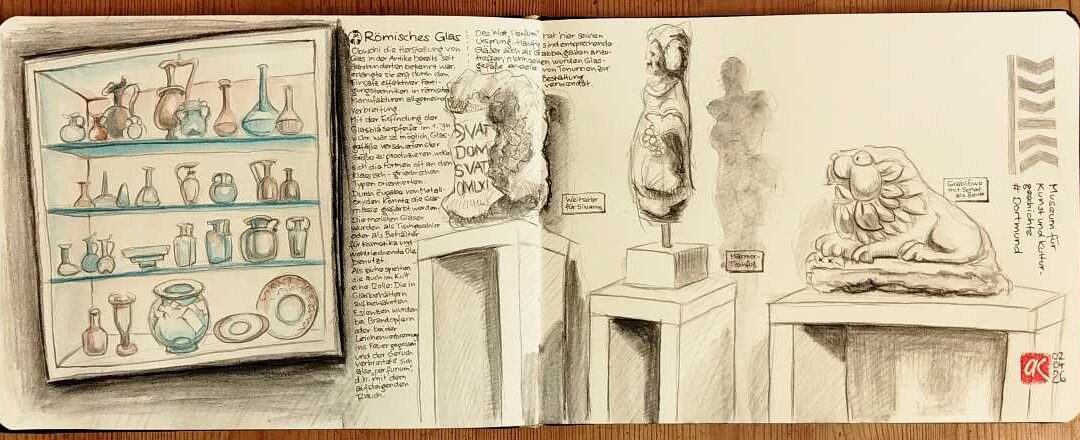 Römisches Glas
Obwohl die Herstellung von
Glas in der Antike bereits seit
Jahrhunderten bekannt war,
erlangte sie erst durch den
Einsatz effektiver Ferti-
gungstechniken in römischen
Manufakturen allgemeine
Verbreitung.
Mit der Erfindung der
Glasbläserpfeife im 1. Jh.
v. Chr. war es möglich, Glas-
gefäße verschiedenster
Größe zu produzieren, wobei
sich die Formen oft an den
klassisch-griechischen
Typen orientierten.
Durch Zugabe von Metall-
oxiden konnte die Glas-
masse gefärbt werden.
Die meisten Gläser
wurden als Tischgeschirr
oder als Behälter
für Kosmetika und
wohlriechende Öle
benutzt.
Als solche spielten
sie auch im Kult
eine Rolle: Die in
Glasbehältern
aufbewahrten
Essenzen wurden
bei Brandopfern
oder bei der
Leichenverbrennung
ins Feuer gegossen
und der Geruch
verbreitete sich
also "per fumum",
d.h. mit dem
aufsteigenden
Rauch.
Das Wort "Parfum" hat hier seinen
Ursprung. Häufig sind entsprechende
Gläser auch als Grabbeigaben anzu-
treffen,
wurden Glas-
gefäße
von Tonurnen zur
Bestattung
verwendet.
SVAT
DOM
SVAT
OMLXI
Weihaltar
für Silvanus
Marmor-
Tischfuß
Grablöwe
mit
als Beute
Museum für
Kunst und Kultur-
geschichte
# Dortmund
ac
02
04
26